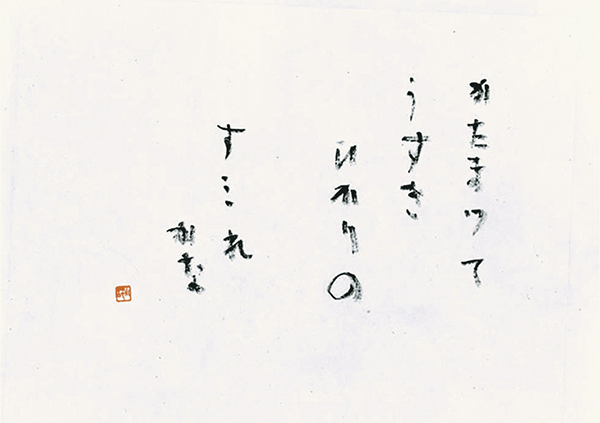 かたまつて
うすき
ひかりの
すミれ
かな